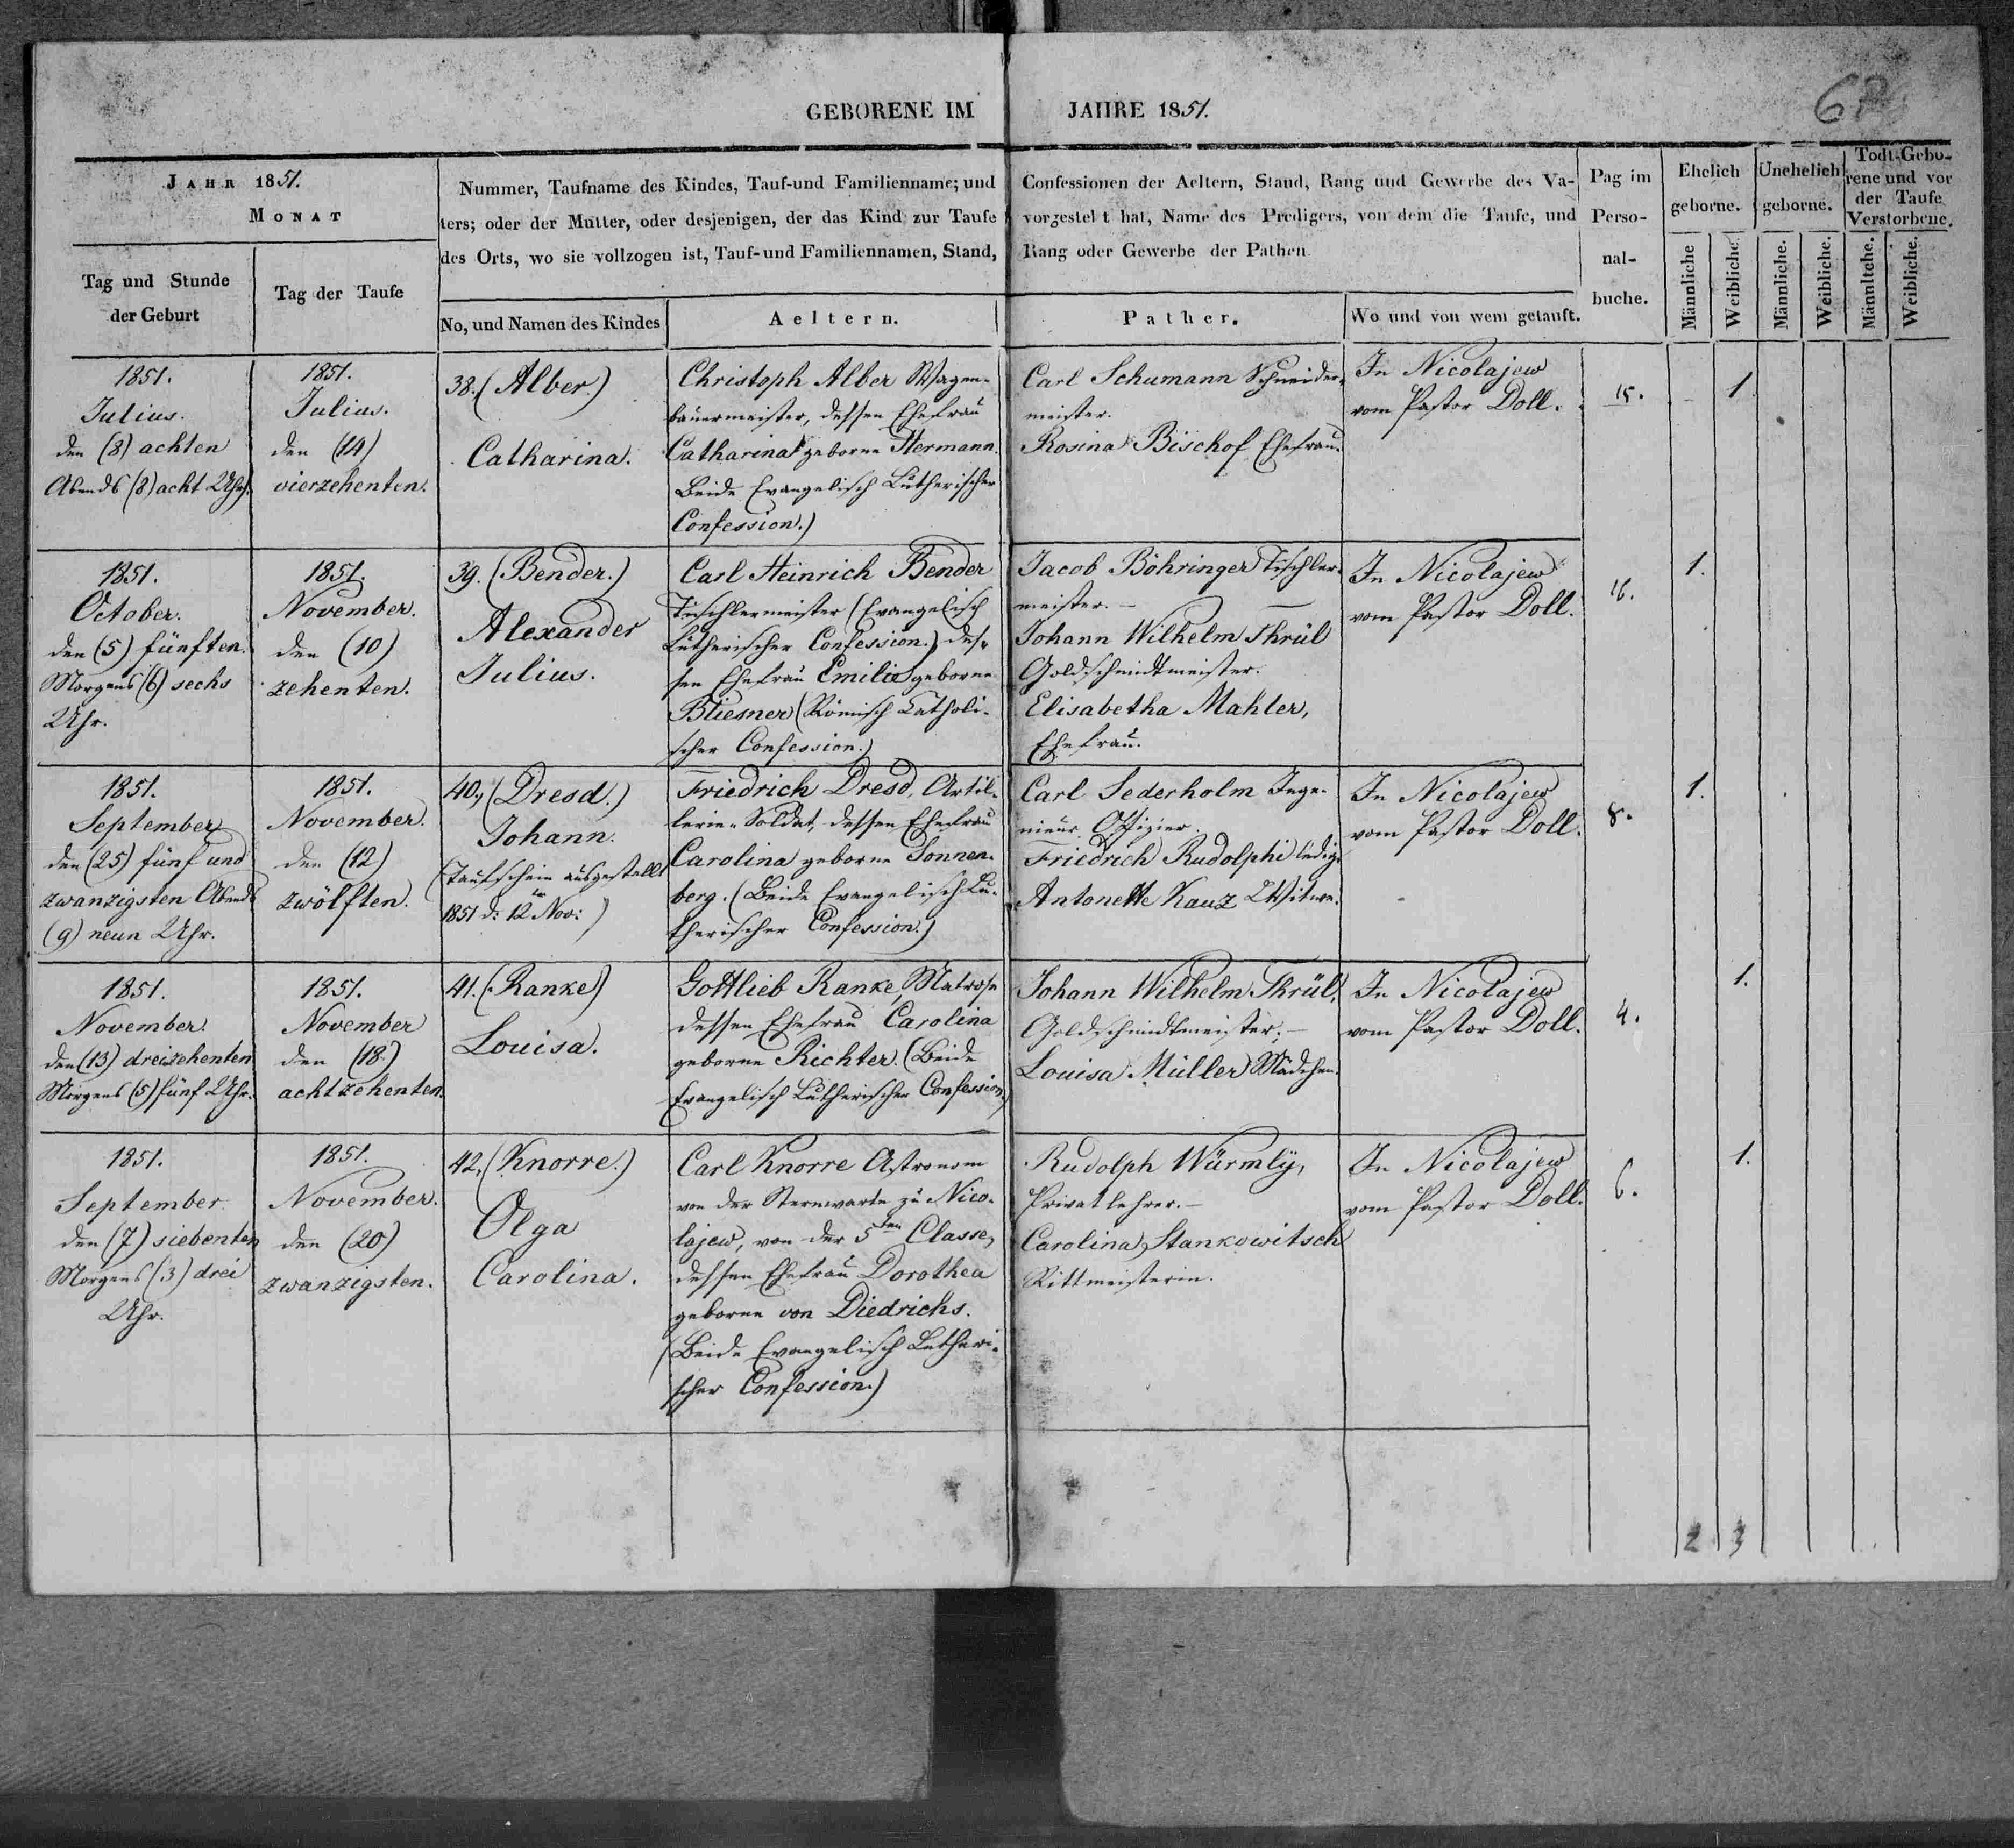 67
GEBORENE IM JAHRE 1851.
JAHR 1851.
MONAT
Tag und Stunde
der Geburt
Tag der Taufe
Nummer, Taufname des Kindes, Tauf-und Familienname; und Confessionen der Aeltern, Stand, Rang und Gewerbe des Va-
ters; oder der Mutter, oder desjenigen, der das Kind zur Taufe vorgestellt hat, Name des Predigers, von dem die Taufe, und
des Orts, wo sie vollzogen ist, Tauf-und Familiennamen, Stand, Rang oder Gewerbe der Pathen
No, und Namen des Kindes
Aeltern.
Pather.
Wo und von wem getauft.
Pag im
Perso-
nal-
buche.
Ehelich
geborne.
Unehelich
geborne.
Todt-Gebo-
rene und vor
der Taufe
Verstorbene.
Männliche
Weibliche.
Männliche.
Weibliche.
Männltche.
Weibliche.
1851.
Julius.
den (8) achten
Abends (8) acht Uhr.
1851.
Julius.
den (14)
vierzehenten.
38. (Alber.)
Catharina.
Christoph Alber Wagen-
bauermeister, dessen Ehefrau
Catharina geborne Hermann.
Beide Evangelisch Lutherischer
Confession.)
Carl Schumann Schneider-
meister.
Rosina Bischof Ehefrau.
In Nicolajew
vom Pastor Doll.
15.
1
1851.
October.
den (5) fünften.
Morgens (6) sechs
Uhr.
1851.
November.
den (10)
zehenten.
39. (Bender.)
Alexander
Julius.
Carl Heinrich Bender
Tischlermeister (Evangelisch
Lutherischer Confession.) des-
sen Ehefrau Emilie geborne
Bliesner (Römisch Catholi-
scher Confession.)
Jacob Böhringer Tischler-
meister. —
Johann Wilhelm Thrül
Goldschmidtmeister.
Elisabetha Mahler,
Ehefrau.
In Nicolajew
vom Pastor Doll.
16.
1.
1851.
September
den (25) fünf und
zwanzigsten Abends
(9) neun Uhr.
1851.
November.
den (12)
zwölften.
40., (Dresd.)
Johann.
(Taufschein ausgestellt
1851 d: 12 Nov:)
Friedrich Dresd, Artil-
lerie-Soldat, dessen Ehefrau
Carolina geborne Sonnen-
berg. (Beide Evangelisch Lu-
therischer Confession.)
Carl Sederholm Inge-
nieur Offizier.
Friedrich Rudolphi ledig.
Antonette Kauz Witwe.
In Nicolajew
vom Pastor Doll.
8.
1.
1851.
November.
den (13) dreizehenten
Morgens (5) fünf Uhr.
1851.
November
den (18.)
achtzehenten.
41. (Ranke)
Louisa.
Gottlieb Ranke, Matrose
dessen Ehefrau Carolina
geborne Richter. (Beide
Evangelisch Lutherischer Confession.)
Johann Wilhelm Thrül,
Goldschmidtmeister. —
Louisa Müller Mädchen.
In Nicolajew
vom Pastor Doll.
4.
1.
1851.
September
den (7) siebenten
Morgens (3) drei
Uhr.
1851.
November.
den (20)
zwanzigsten.
42. (Knorre.)
Olga
Carolina.
Carl Knorre Astronom
von der Sternwarte zu Nico-
lajew, von der 5ten Classe,
dessen Ehefrau Dorothea
geborne von Diedrichs.
(Beide Evangelisch Lutheri-
scher Confession.)
Rudolph Würmly,
Privatlehrer. —
Carolina Stankowitsch
Rittmeisterin.
In Nicolajew
vom Pastor Doll.
6.
1.
2 3